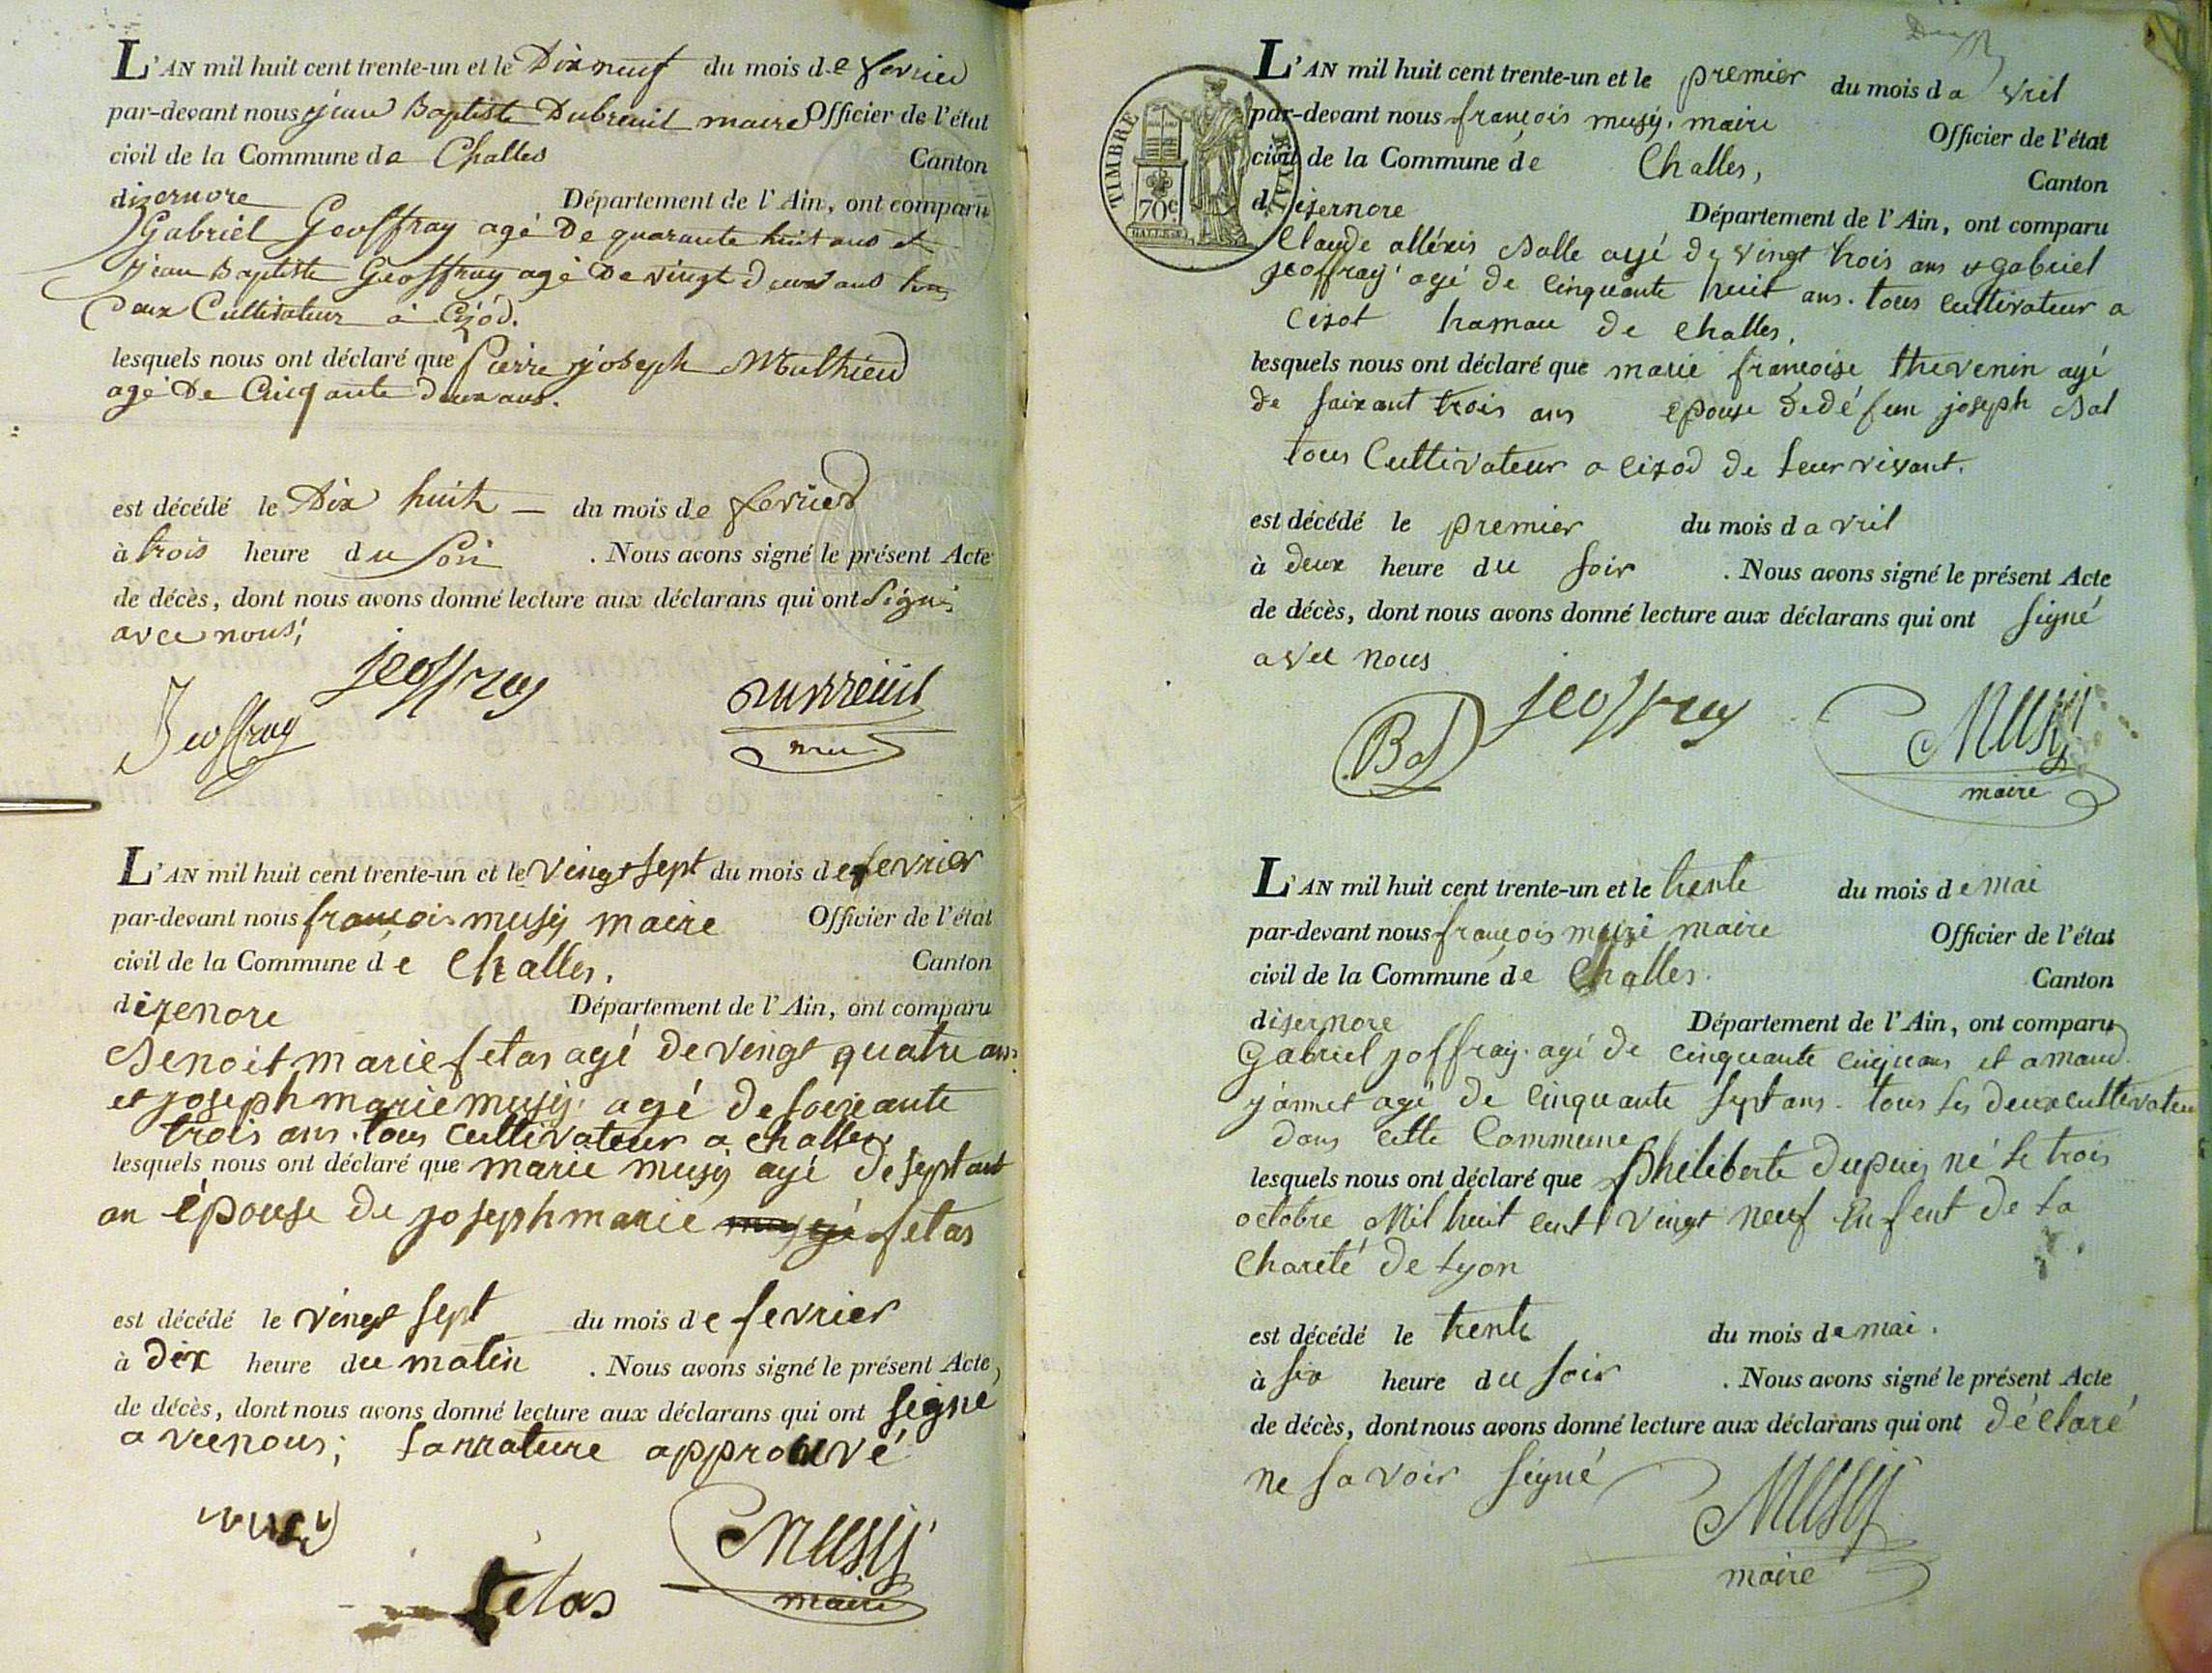 L'AN mil huit cent trente-un et le Dix neuf du mois de fevrier
par-devant nous jean Baptiste Dubreuil maire Officier de l'état
civil de la Commune de Challes Canton
dizernore Département de l'Ain, ont comparu
Gabriel Geoffray agé De quarante huit ans et
jean Baptiste Geoffray agé De vingt deux ans tous
deux Cultivateur à Cizod.
lesquels nous ont déclaré que Pierre joseph Mathieu
agé De Cinq ante deux ans.
est décédé le Dix huit — du mois de fevrier
à trois heure du Soir . Nous avons signé le présent Acte
de décès, dont nous avons donné lecture aux déclarans qui ont Signé
avec nous;
jeoffray
Jeoffray
Dubreuil
L'AN mil huit cent trente-un et le vingt sept du mois de fevrier
par-devant nous françois musy maire Officier de l'état
civil de la Commune de Challes. Canton
dizenore Département de l'Ain, ont comparu
Benoit marie fetas agé de vingt quatre ans
et joseph marie musy. agé de soixante
trois ans. tous cultivateur a challes.
lesquels nous ont déclaré que marie musy agé de septant
an épouse de joseph marie fetas
est décédé le vingt sept du mois de fevrier
à dix heure du matin . Nous avons signé le présent Acte,
de décès, dont nous avons donné lecture aux déclarans qui ont signé
avec nous; la rrature approuvé
musy
Musy
fetas
maire
L'AN mil huit cent trente-un et le premier du mois d avril
par-devant nous françois musy. maire Officier de l'état
civil de la Commune de Challes, Canton
d izernore Département de l'Ain, ont comparu
TIMBRE ROYAL
70c.
Claude alléxis Balle agé de vingt trois ans et gabriel
jeoffray agé de cinquante huit ans. tous cultivateur a
Cizot hamau de challes.
lesquels nous ont déclaré que marie françoise thevenin agé
de soixant trois ans épouse de défeun joseph Bal
tous Cultivateur a cizod de leur vivant.
est décédé le premier du mois d avril
à deux heure du soir . Nous avons signé le présent Acte
de décès, dont nous avons donné lecture aux déclarans qui ont signé
avec nous
Bal jeoffray Musy
maire
L'AN mil huit cent trente-un et le trente du mois de mai
par-devant nous françois musi maire Officier de l'état
civil de la Commune de Challes. Canton
dizernore Département de l'Ain, ont comparu
Gabriel joffray. agé de cinquante cinq ans et amand
jannet agé de cinquante sept ans. tous les deux cultivateur
dans cette Commune
lesquels nous ont déclaré que philiberte dupuis né le trois
octobre Mil huit cent vingt neuf Enfent de la
Chareté de Lyon
est décédé le trente du mois de mai.
à six heure du soir . Nous avons signé le présent Acte
de décès, dont nous avons donné lecture aux déclarans qui ont déclaré
ne savoir signé
Musy
maire